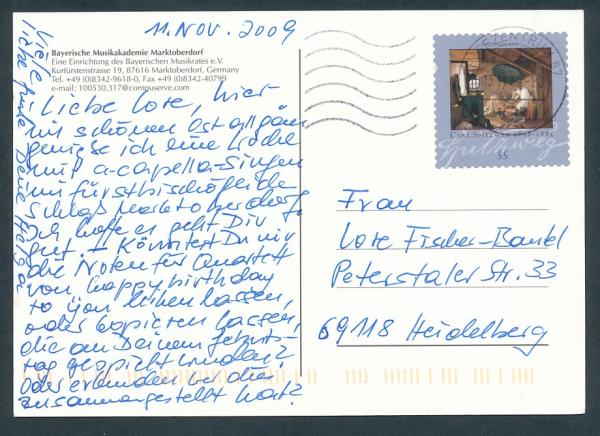 11. NOV. 2009
Bayerische Musikakademie Marktoberdorf
Eine Einrichtung des Bayerischen Musikrates e.V.
Kurfürstenstrasse 19, 87616 Marktoberdorf, Germany
Tel. +49 (0)8342-9618-0, Fax +49 (0)8342-40799
e-mail: 100530.317@compuserve.com
Liebe Lore, hier
im schönen Ostallgäu
genieße ich eine Woche
mit a-capella-Singen
im fürstbischöfliche
Schloß Marktoberdorf
Ich hoffe es geht Dir
gut. – Könntest Du mir
die Noten für Quartett
von happy birthday
to you leihen lassen,
oder kopieren lassen,
die an Deinem Geburts-
tag gespielt wurden?
Oder erkunden wer die
zusammengestellt hat?
Viele
liebe Grüße Deine Helga
CARL SPITZWEG 1808-1885
Spitzweg
55
Frau
Lore Fischer-Bantel
Peterstaler Str. 33
69118 Heidelberg